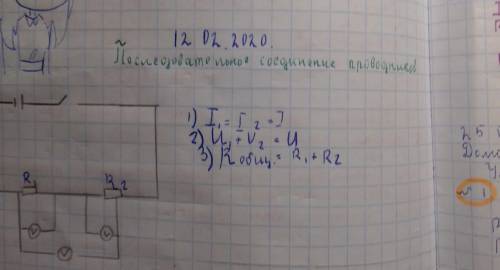 12.02.2020.
Последовательное соединение проводников
1) I₁ = I₂ = I
2) U₁ + U₂ = U
3) R общ. = R₁ + R₂
R₁ R₂
V V
V
25
Дома
№ 1